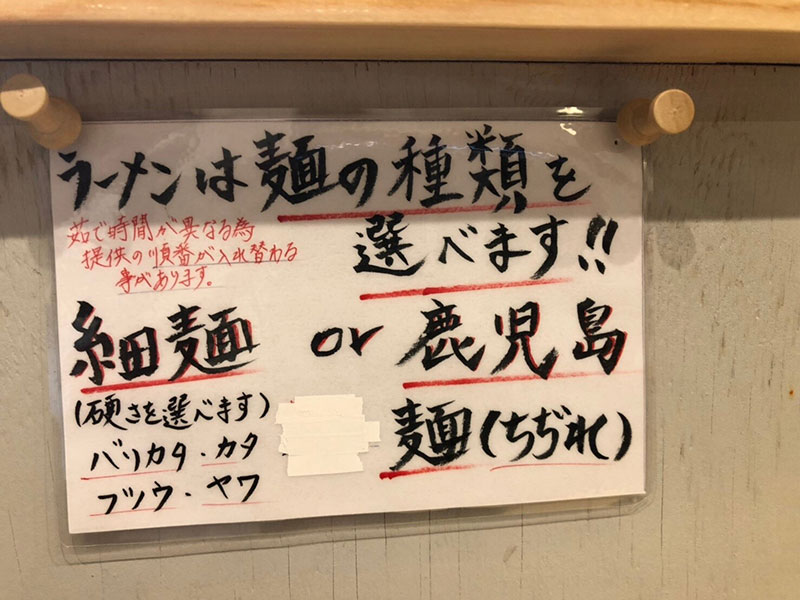 ラーメンは麺の種類を
選べます!!
茹で時間が異なる為
提供の順番が入れ替わる
事があります。
細麺 or 鹿児島
麺(ちぢれ)
(硬さを選べます)
バリカタ・カタ
フツウ・ヤワ